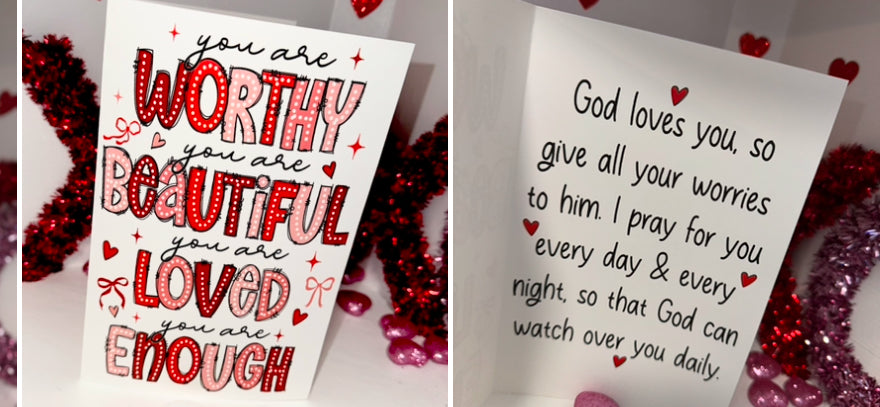 you are
WORTHY
you are
BEAUTIFUL
you are
LOVED
you are
ENOUGH
God loves you, so
give all your worries
to him. I pray for you
every day & every
night, so that God can
watch over you daily.